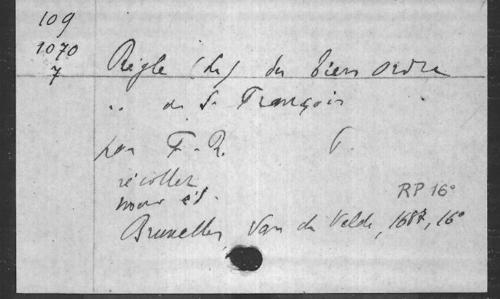 109
1070
7
Règle (La) du tiers ordre
" de St François
par F. R. P.
récollet
nouv éd.
RP 16°
Bruxelles, Van de Velde, 1687, 16°